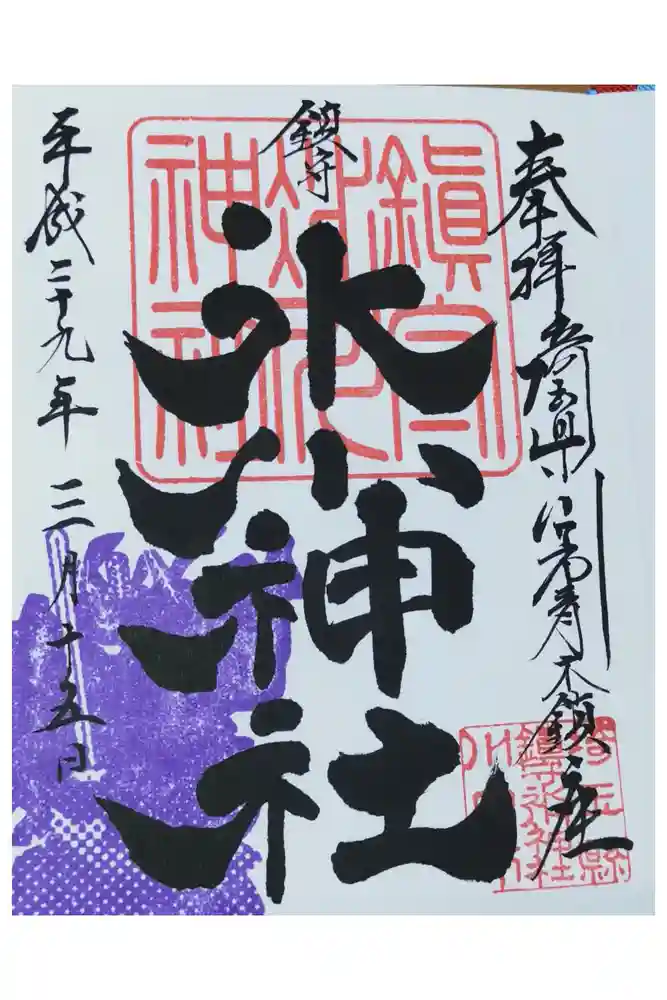 奉拝 埼玉県川口市青木鎮座
鎮守
氷川神社
平成二十九年三月十五日
鎭守
氷川
神社